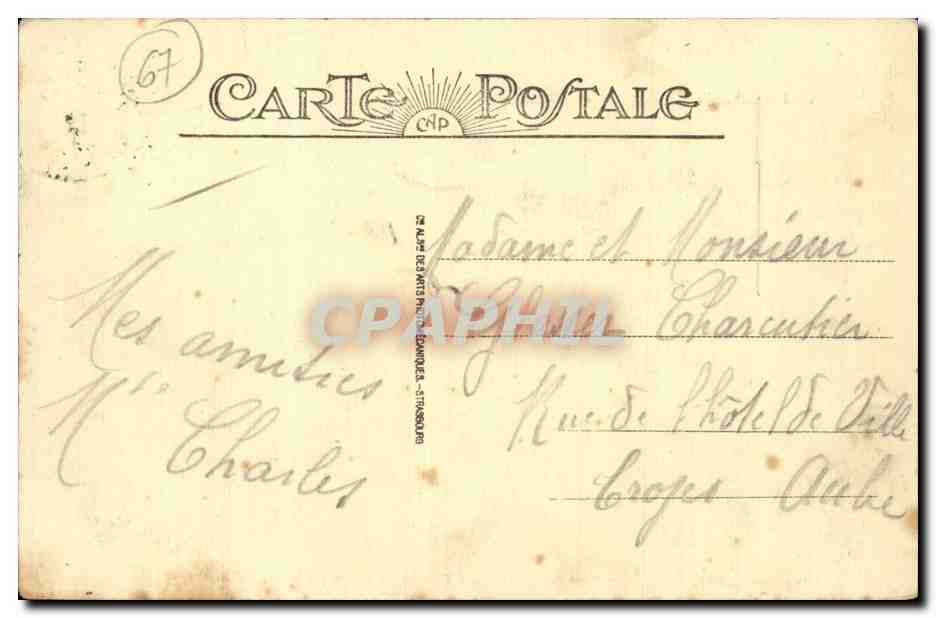 67
CARTE POSTALE
CAP
Mes amitiés
Charles
Cie ALSne DES ARTS PHOTOMÉCANIQUES.-STRASBOURG
Madame et Monsieur
Charcutier
Rue de l'hôtel de Ville
Troyes Aube
CPAPHIL